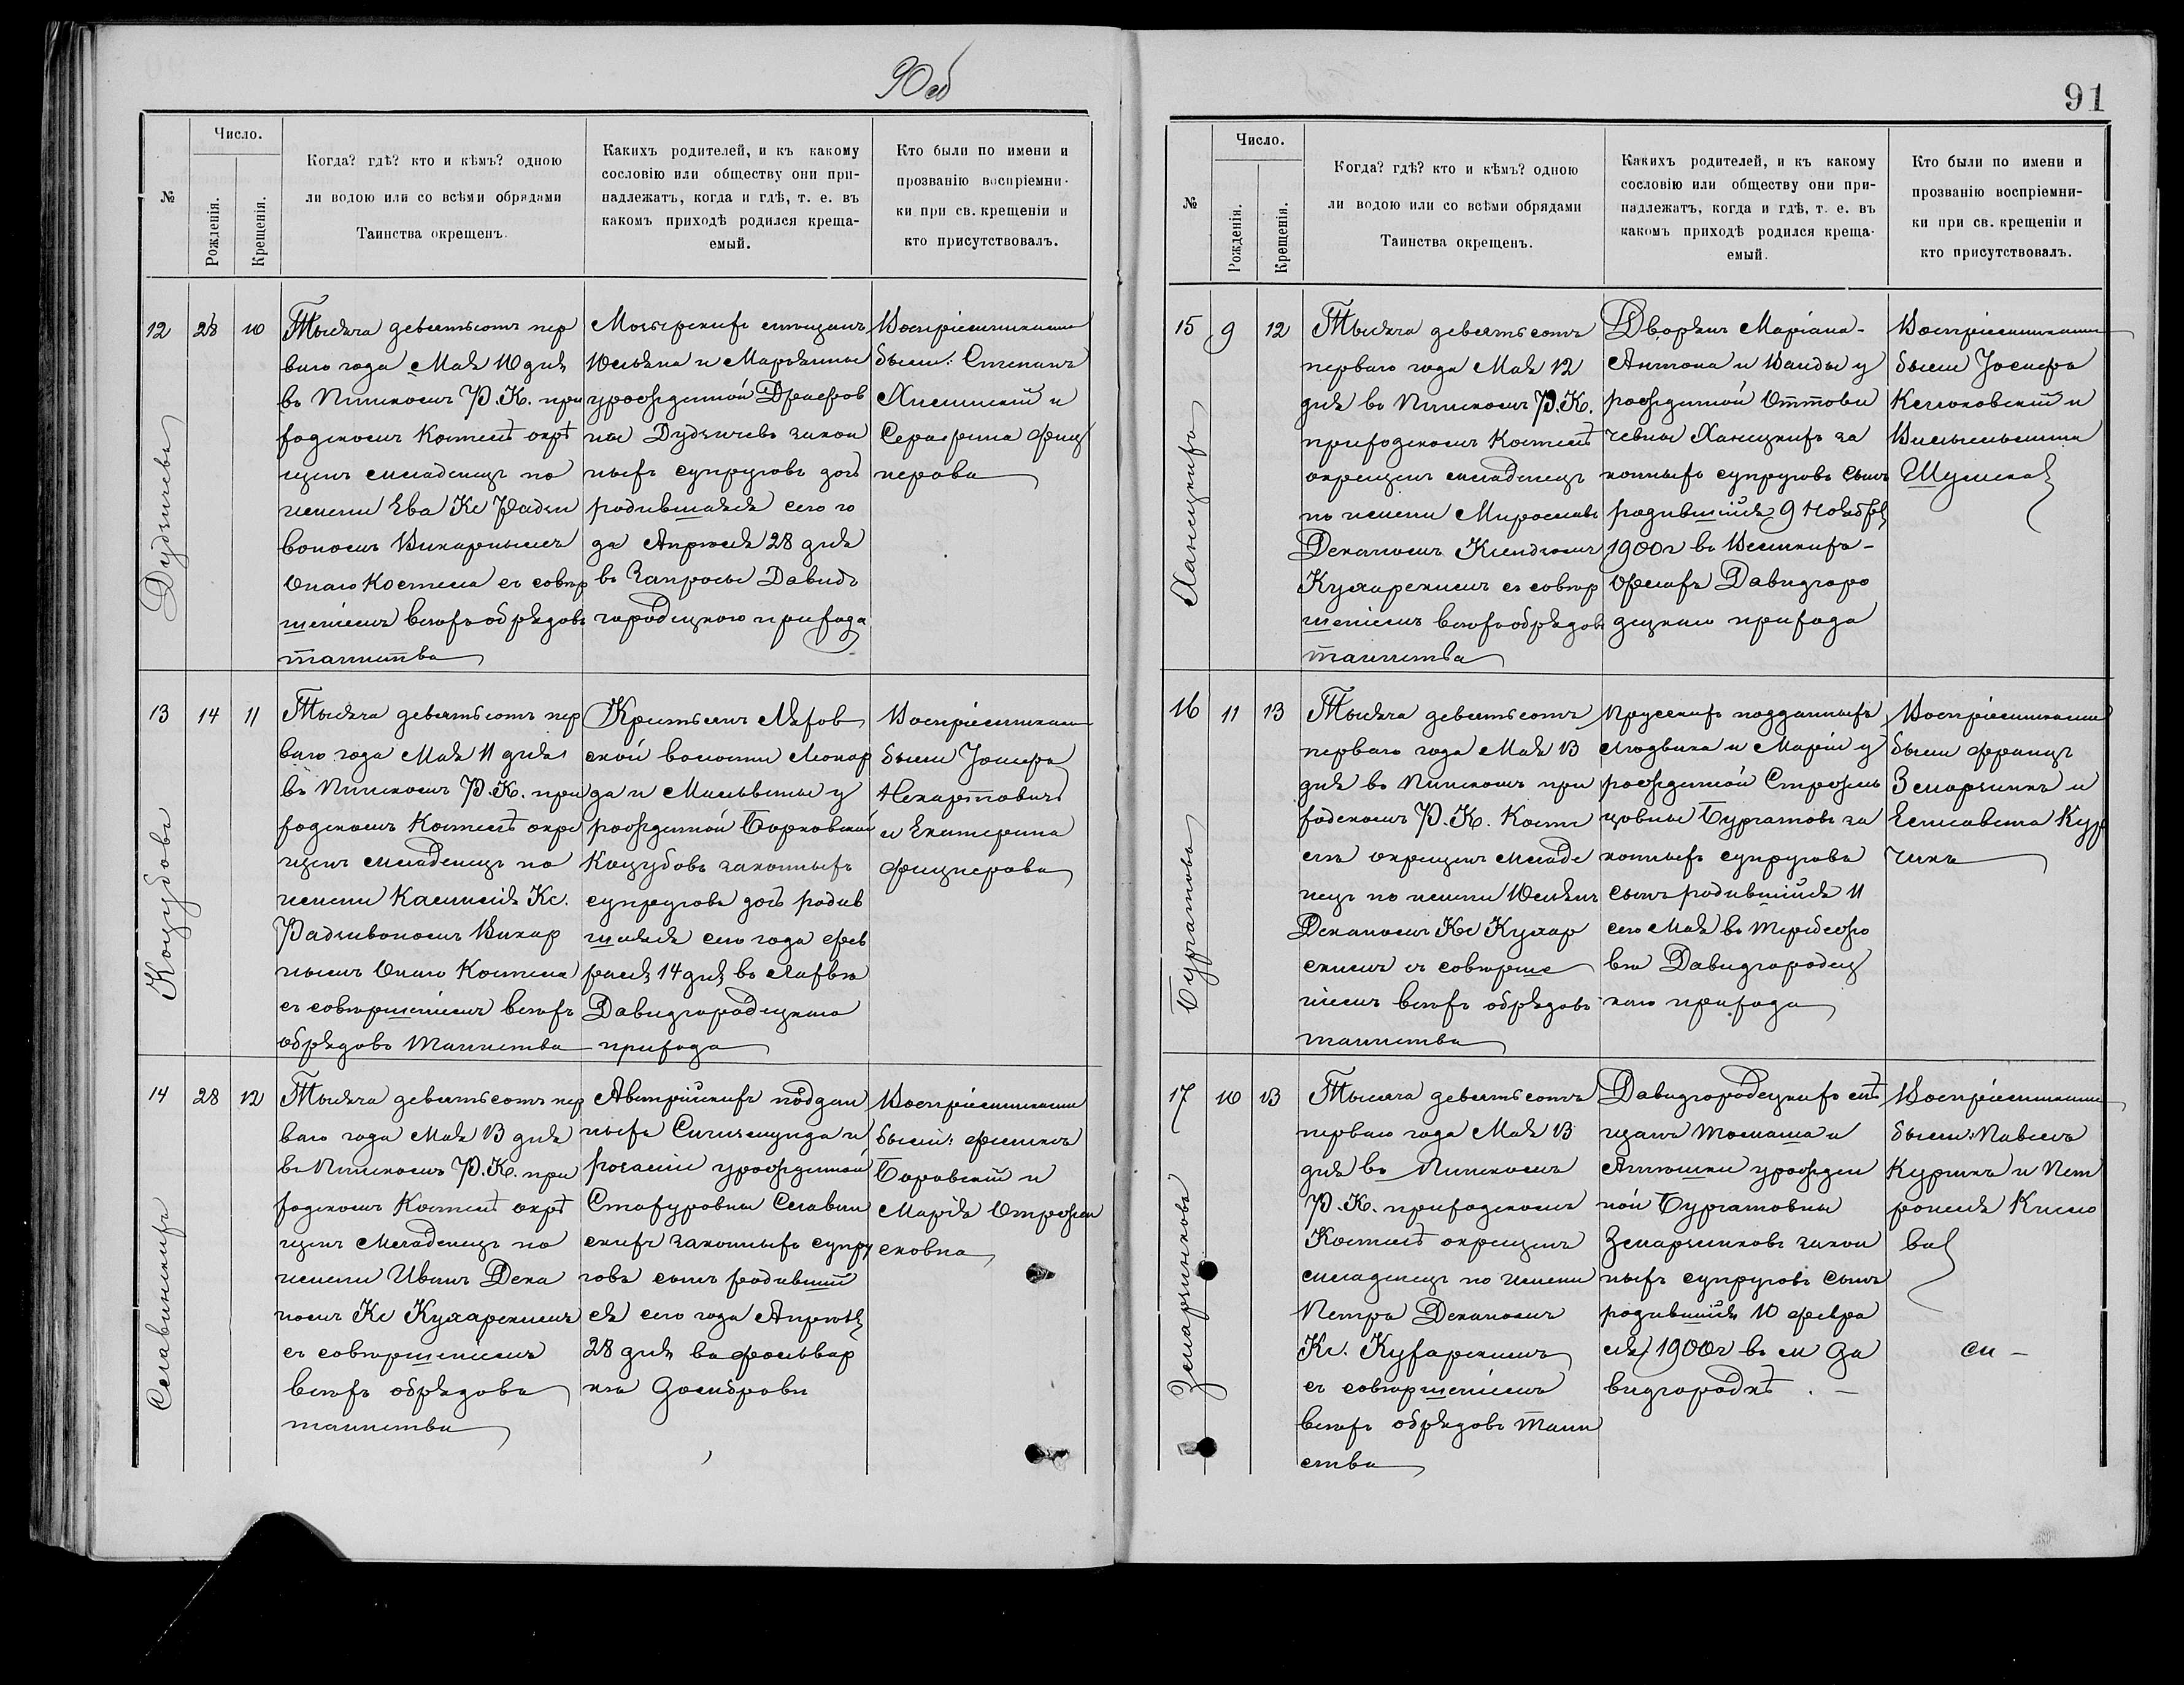 90об
№
Число.
Рожденія.
Крещенія.
Когда? гдѣ? кто и кѣмъ? одною
ли водою или со всѣми обрядами
Таинства окрещенъ.
Какихъ родителей, и къ какому
сословію или обществу они при-
надлежатъ, когда и гдѣ, т. е. въ
какомъ приходѣ родился креща-
емый.
Кто были по имени и
прозванію воспріемни-
ки при св. крещеніи и
кто присутствовалъ.
Дудзичева
12
28
10
Тысяча девятьсотъ пер
ваго года Мая 10 дня
въ Пинскомъ Р.К. при
ходскомъ Костелѣ окрѣ
щенъ младенецъ по
имени Ева Кс Радзи
вономъ Викарнымъ
Онаго Костела съ совер
шеніемъ всѣхъ обрядовъ
таинства
Мозырскихъ мѣщанъ
Юльяна и Марьянны
урожденной
Дудзичевъ закон
ныхъ супруговъ дочь
родившаяся сего го
да Апрѣля 28 дня
въ Давидъ
городецкого прихода
Воспріемниками
были: Степанъ
и
Серафина Фиц
нерова
Коцубова
13
14
11
Тысяча девятьсотъ пер
ваго года Мая 11 дня
въ Пинскомъ Р.К. при
ходскомъ Костелѣ окре
щенъ младенецъ по
имени Камилія Кс.
Радзивономъ Викар
нымъ Онаго Костела
съ совершеніемъ всѣхъ
обрядовъ Таинства
Крестьянъ Ляхов
ской волости Леонар
да и Мальвины у
рожденной Борковской
Коцубовъ законныхъ
супруговъ дочь родив
шаяся сего года фев
раля 14 дня въ Лахвѣ
Давидгородецкаго
прихода
Воспріемниками
были Іосифъ
Некартовичъ
и Екатерина
Фицнерова
Славинскихъ
14
28
12
Тысяча девятьсотъ пер
ваго года Мая 13 дня
въ Пинскомъ Р.К. при
ходскомъ Костелѣ окрѣ
щенъ Младенецъ по
имени Иванъ Дека
номъ Кс Кухарскимъ
съ совершеніемъ
всѣхъ обрядовъ
таинства
Австрійскихъ поддан
ныхъ Сигизмунда и
Розаліи урожденной
Славин
скихъ законныхъ супру
говъ сынъ родившій
ся сего года Апрѣля
28 дня въ фольвар
кѣ Домброви
Воспріемниками
были: Феликсъ
Боровскій и
Марія
91
№
Число.
Рожденія.
Крещенія.
Когда? гдѣ? кто и кѣмъ? одною
ли водою или со всѣми обрядами
Таинства окрещенъ.
Какихъ родителей, и къ какому
сословію или обществу они при-
надлежатъ, когда и гдѣ, т. е. въ
какомъ приходѣ родился креща-
емый.
Кто были по имени и
прозванію воспріемни-
ки при св. крещеніи и
кто присутствовалъ.
Ханецкихъ
15
9
12
Тысяча девятьсотъ
перваго года Мая 12
дня въ Пинскомъ Р.К.
приходскомъ Костелѣ
окрещенъ младенецъ
по имени Мирославъ
Деканомъ Ксендзомъ
Кухарскимъ съ совер
шеніемъ всѣхъ обрядовъ
таинства
Дворянъ Маріана-
Антона и Ванды у
рожденной Оттови
чевны Ханецкихъ за
конныхъ супруговъ сынъ
родившійся 9 Ноября
1900г въ Великихъ-
Орлахъ Давидгоро
децкаго прихода
Воспріемниками
были Іосифъ
и
Вильгельмина
Бургатова
16
11
13
Тысяча девятьсотъ
перваго года Мая 13
дня въ Пинскомъ при
ходскомъ Р.К. Косте
лѣ окрещенъ младе
нецъ по имени Юльянъ
Деканомъ Кс Кухар
скимъ съ соверше
ніемъ всѣхъ обрядовъ
таинства
Прусскихъ подданныхъ
Людвика и Маріи у
рожденной
Бургатовъ за
конныхъ супруговъ
сынъ родившійся 11
сего Мая въ
Давидгородец
каго прихода
Воспріемниками
были Францъ
Змарзликъ и
Елисавета Кур
чикъ
Змарзликовъ
17
10
13
Тысяча девятьсотъ
перваго года Мая 13
дня въ Пинскомъ
Р.К. приходскомъ
Костелѣ окрещенъ
младенецъ по имени
Петръ Деканомъ
Кс. Кухарскимъ
съ совершеніемъ
всѣхъ обрядовъ таин
ства
Давидгородецкихъ мѣ
щанъ Томаша и
урожден
ной Бургатовны
Змарзликовъ закон
ныхъ супруговъ сынъ
родившійся 10 февра
ля 1900г въ м Да
видгородкѣ. -
Воспріемниками
были: Павелъ
и Пет
ронеля